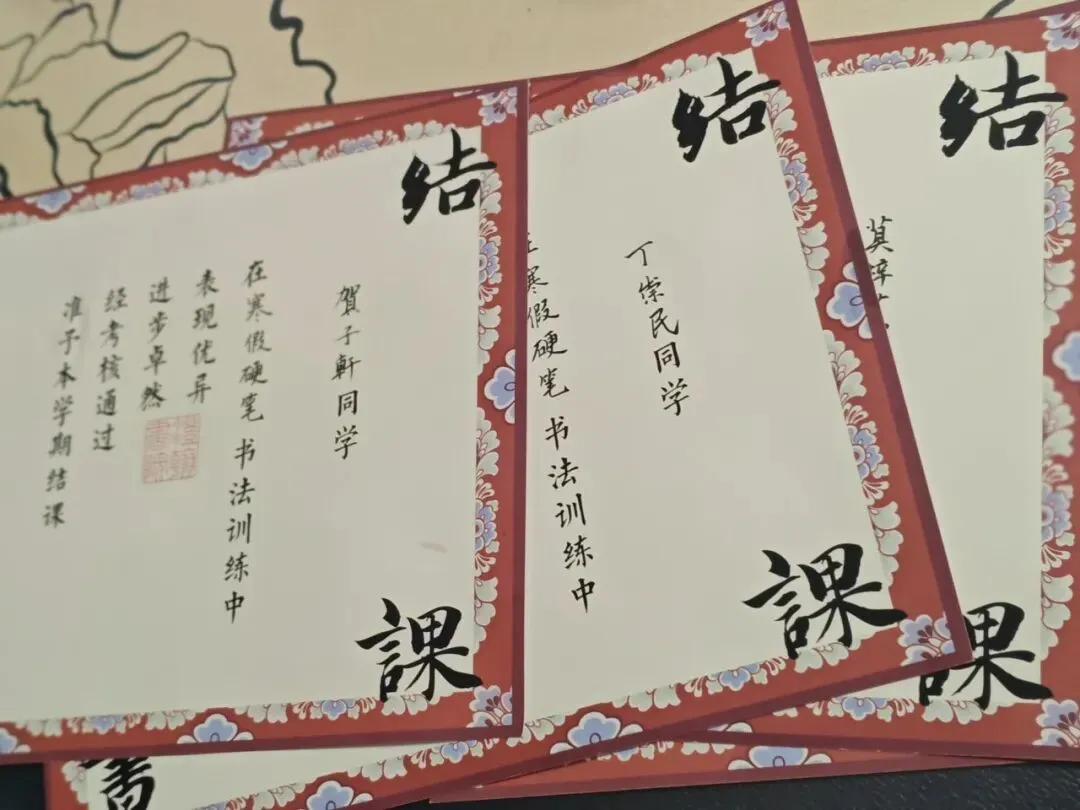 结課
賀子軒同学
在寒假硬笔书法训练中
表现优异
进步卓然
经考核通过
准予本学期结课
结課
丁崇民同学
寒假硬笔书法训练中
结課
莫
書